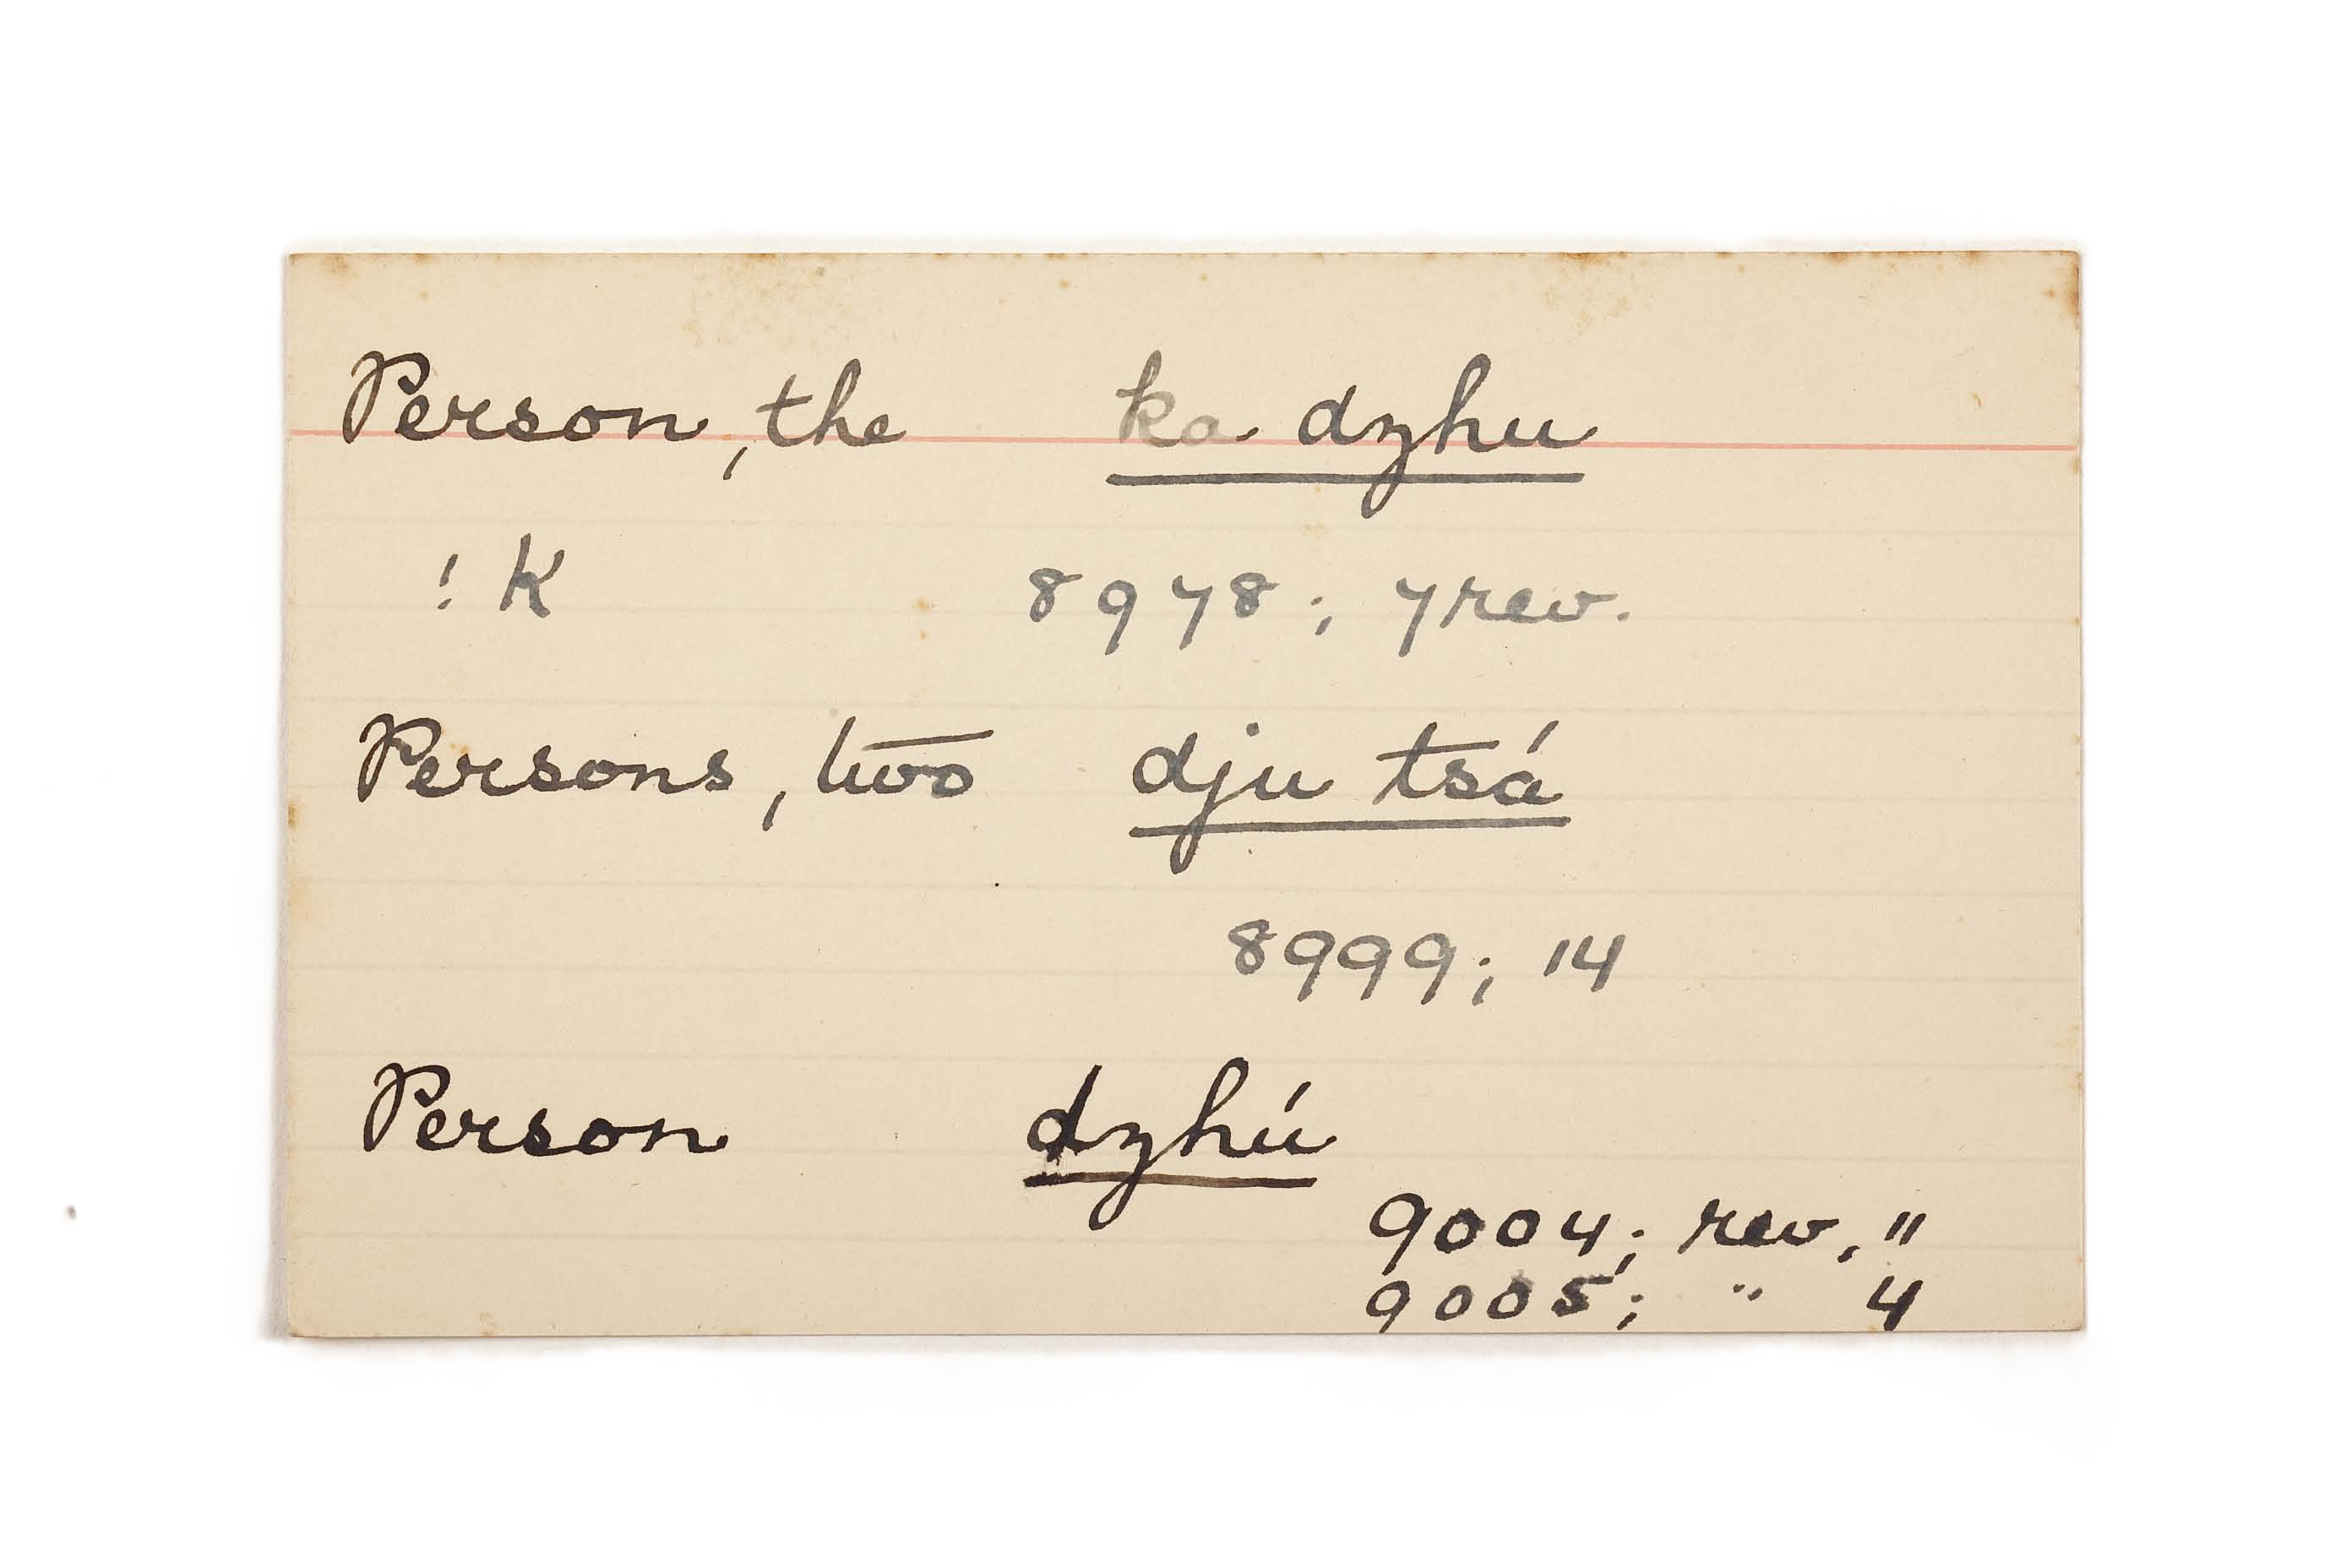 Person, the ka dzhu
! K 8978; 7 rev.
Persons, two dju tsá
8999; 14
Person dzhú
9004; rev, "
9005; " 4